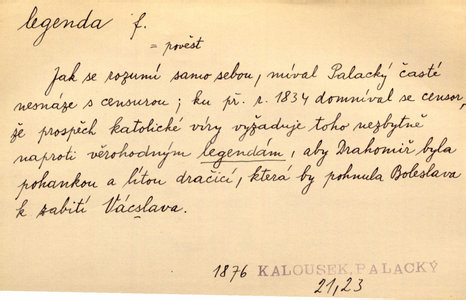 legenda f.
= pověst
Jak se rozumí samo sebou, míval Palacký časté
nesnáze s censurou; ku př. r. 1834 domníval se censor,
že prospěch katolické víry vyžaduje toho nezbytně
naproti věrohodným legendám, aby Drahomíř byla
pohankou a lítou dračicí, která by pohnula Boleslava
k zabití Vácslava.
1876 KALOUSEK, PALACKÝ
21,23